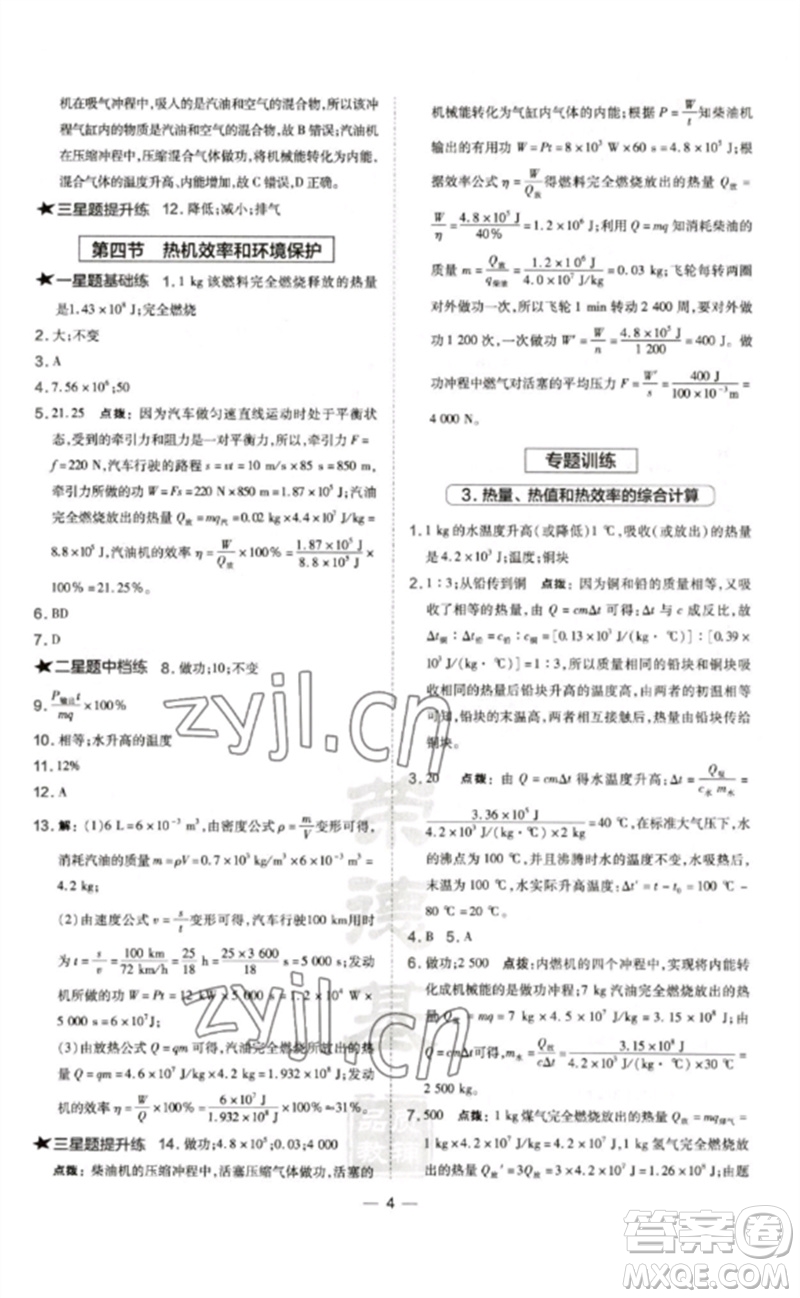 机在吸气冲程中,吸入的是汽油和空气的混合物,所以该冲
程气缸内的物质是汽油和空气的混合物,故 B 错误;汽油机
在压缩冲程中,压缩混合气体做功,将机械能转化为内能,
混合气体的温度升高、内能增加,故 C 错误,D 正确。
★三星题提升练 12. 降低;减小;排气
第四节 热机效率和环境保护
★一星题基础练 1. 1 kg 该燃料完全燃烧释放的热量
是1.43×10⁸ J;完全燃烧
2. 大;不变
3. A
4. 7.56×10⁶;50
5. 21.25 点拨:因为汽车做匀速直线运动时处于平衡状
态,受到的牵引力和阻力是一对平衡力,所以,牵引力 F=
f=220 N,汽车行驶的路程 s=st=10 m/s×85 s=850 m,
牵引力做的功 W=Fs=220 N×850 m=1.87×10⁵ J;汽油
完全燃烧放出的热量 Q放=mq汽=0.02 kg×4.4×10⁷ J/kg=
8.8×10⁵ J,汽油机的效率 η=W/Q放×100%=1.87×10⁵ J/8.8×10⁵ J×
100%=21.25%。
6. BD
7. D
★二星题中档练 8. 做功;10;不变
9. P输出t/mq×100%
10. 相等;水升高的温度
11. 12%
12. A
13. 解:(1)6 L=6×10⁻³ m³,由密度公式 ρ=m/V变形可得,
消耗汽油的质量 m=ρV=0.7×10³ kg/m³×6×10⁻³ m³=
4.2 kg;
(2)由速度公式 v=s/t变形可得,汽车行驶100 km用时
为 t=s/v=100 km/72 km/h=25/18 h=25×3 600/18 s=5 000 s;发动
机所做的功 W=Pt=12 kW×5 000 s=1.2×10⁴ W×
5 000 s=6×10⁷J;
(3)由放热公式 Q=qm 可得,汽油完全燃烧所放出的热
量 Q=qm=4.6×10⁷ J/kg×4.2 kg=1.932×10⁸ J,发动
机的效率 η=W/Q×100%=6×10⁷ J/1.932×10⁸ J×100%≈31%。
★三星题提升练 14. 做功;4.8×10⁵;0.03;4 000
点拨:柴油机的压缩冲程中,活塞压缩气体做功,活塞的
机械能转化为气缸内气体的内能;根据 P=W/t知柴油机
输出的有用功 W=Pt=8×10³ W×60 s=4.8×10⁵ J;
根据效率公式 η=W/Q放得燃料完全燃烧放出的热量 Q放=
W/η=4.8×10⁵ J/40%=1.2×10⁶ J;利用 Q放=mq 知消耗柴油的
质量 m=Q放/q柴油=1.2×10⁶ J/4.0×10⁷ J/kg=0.03 kg;飞轮每转两圈
对外做功一次,所以飞轮 1 min 转动 2 400 周,要对外
做功 1 200 次,一次做功 W′=W/n=4.8×10⁵ J/1 200=400 J。做
功冲程中燃气对活塞的平均压力 F=W′/s=400 J/100×10⁻³m=
4 000 N。
专题训练
3. 热量、热值和热效率的综合计算
1. 1 kg 的水温度升高(或降低)1 ℃,吸收(或放出)的热量
是 4.2×10³ J;温度;铜块
2. 1∶3;从铅传到铜 点拨:因为铜和铅的质量相等,又吸
收了相等的热量,由 Q=cmΔt 可得:Δt 与 c 成反比,故
Δt铜∶Δt铅=c铅∶c铜=[0.13×10³ J/(kg·℃)]∶[0.39×
10³ J/(kg·℃)]=1∶3,因为原来的铅块和铜块的初温
相同,铅块升高的温度较铜块升高的温度高,所以后来,
铅块的末温高,两者相互接触后,热量由铅块传给
铜块。
3. 20 点拨:由 Q=cmΔt 得水温度升高:Δt=Q吸/c水m水=
3.36×10⁵ J/4.2×10³ J/(kg·℃)×2 kg=40 ℃,在标准大气压下,水
的沸点为 100 ℃,并且沸腾时水的温度不变,水吸热后,
末温为 100 ℃,水实际升高温度:Δt′=t-t₀=100 ℃-
80 ℃=20 ℃。
4. B 5. A
6. 做功;2 500 点拨:内燃机的四个冲程中,实现将内能转
化成机械能的是做功冲程;7 kg 汽油完全燃烧放出的热
量 Q放=mq=7 kg×4.5×10⁷ J/kg=3.15×10⁸ J;由
Q=cmΔt可得,m水=Q放/cΔt=3.15×10⁸ J/4.2×10³ J/(kg·℃)×30 ℃=
2 500 kg。
7. 500 点拨:1 kg 煤气完全燃烧放出的热量 Q放=mq煤气=
1 kg×4.2×10⁷ J/kg=4.2×10⁷ J;1 kg 氢气完全燃烧放
出的热量 Q放′=3Q放=3×4.2×10⁷ J=1.26×10⁸ J,由题
zyjl.cn
zyjl.cn
荣德基
品质教辅
4
答案卷
MXQE.COM